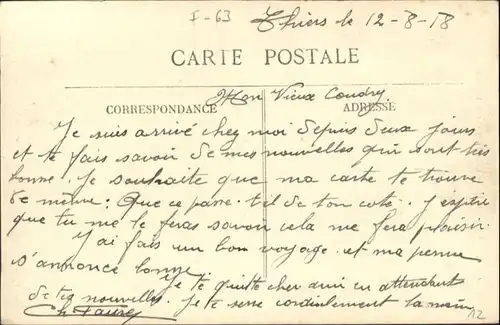 F-63
Thiers le 12-8-18
CARTE POSTALE
Mon Vieux Coudry
CORRESPONDANCE ADRESSE
Je suis arrivé chez moi depuis deux jours
et te fais savoir de mes nouvelles qui sont très
bonne. Je souhaite que ma carte te trouve
de même: Que ce passe-t-il de ton coté. J'espère
que tu me le feras savoir cela me fera plaisir.
J'ai fais un bon voyage et ma perme
s'annonce bonne.
Je te quitte cher ami en attendant
de tes nouvelles. Je te serre cordialement la main
Ch. Faure
12